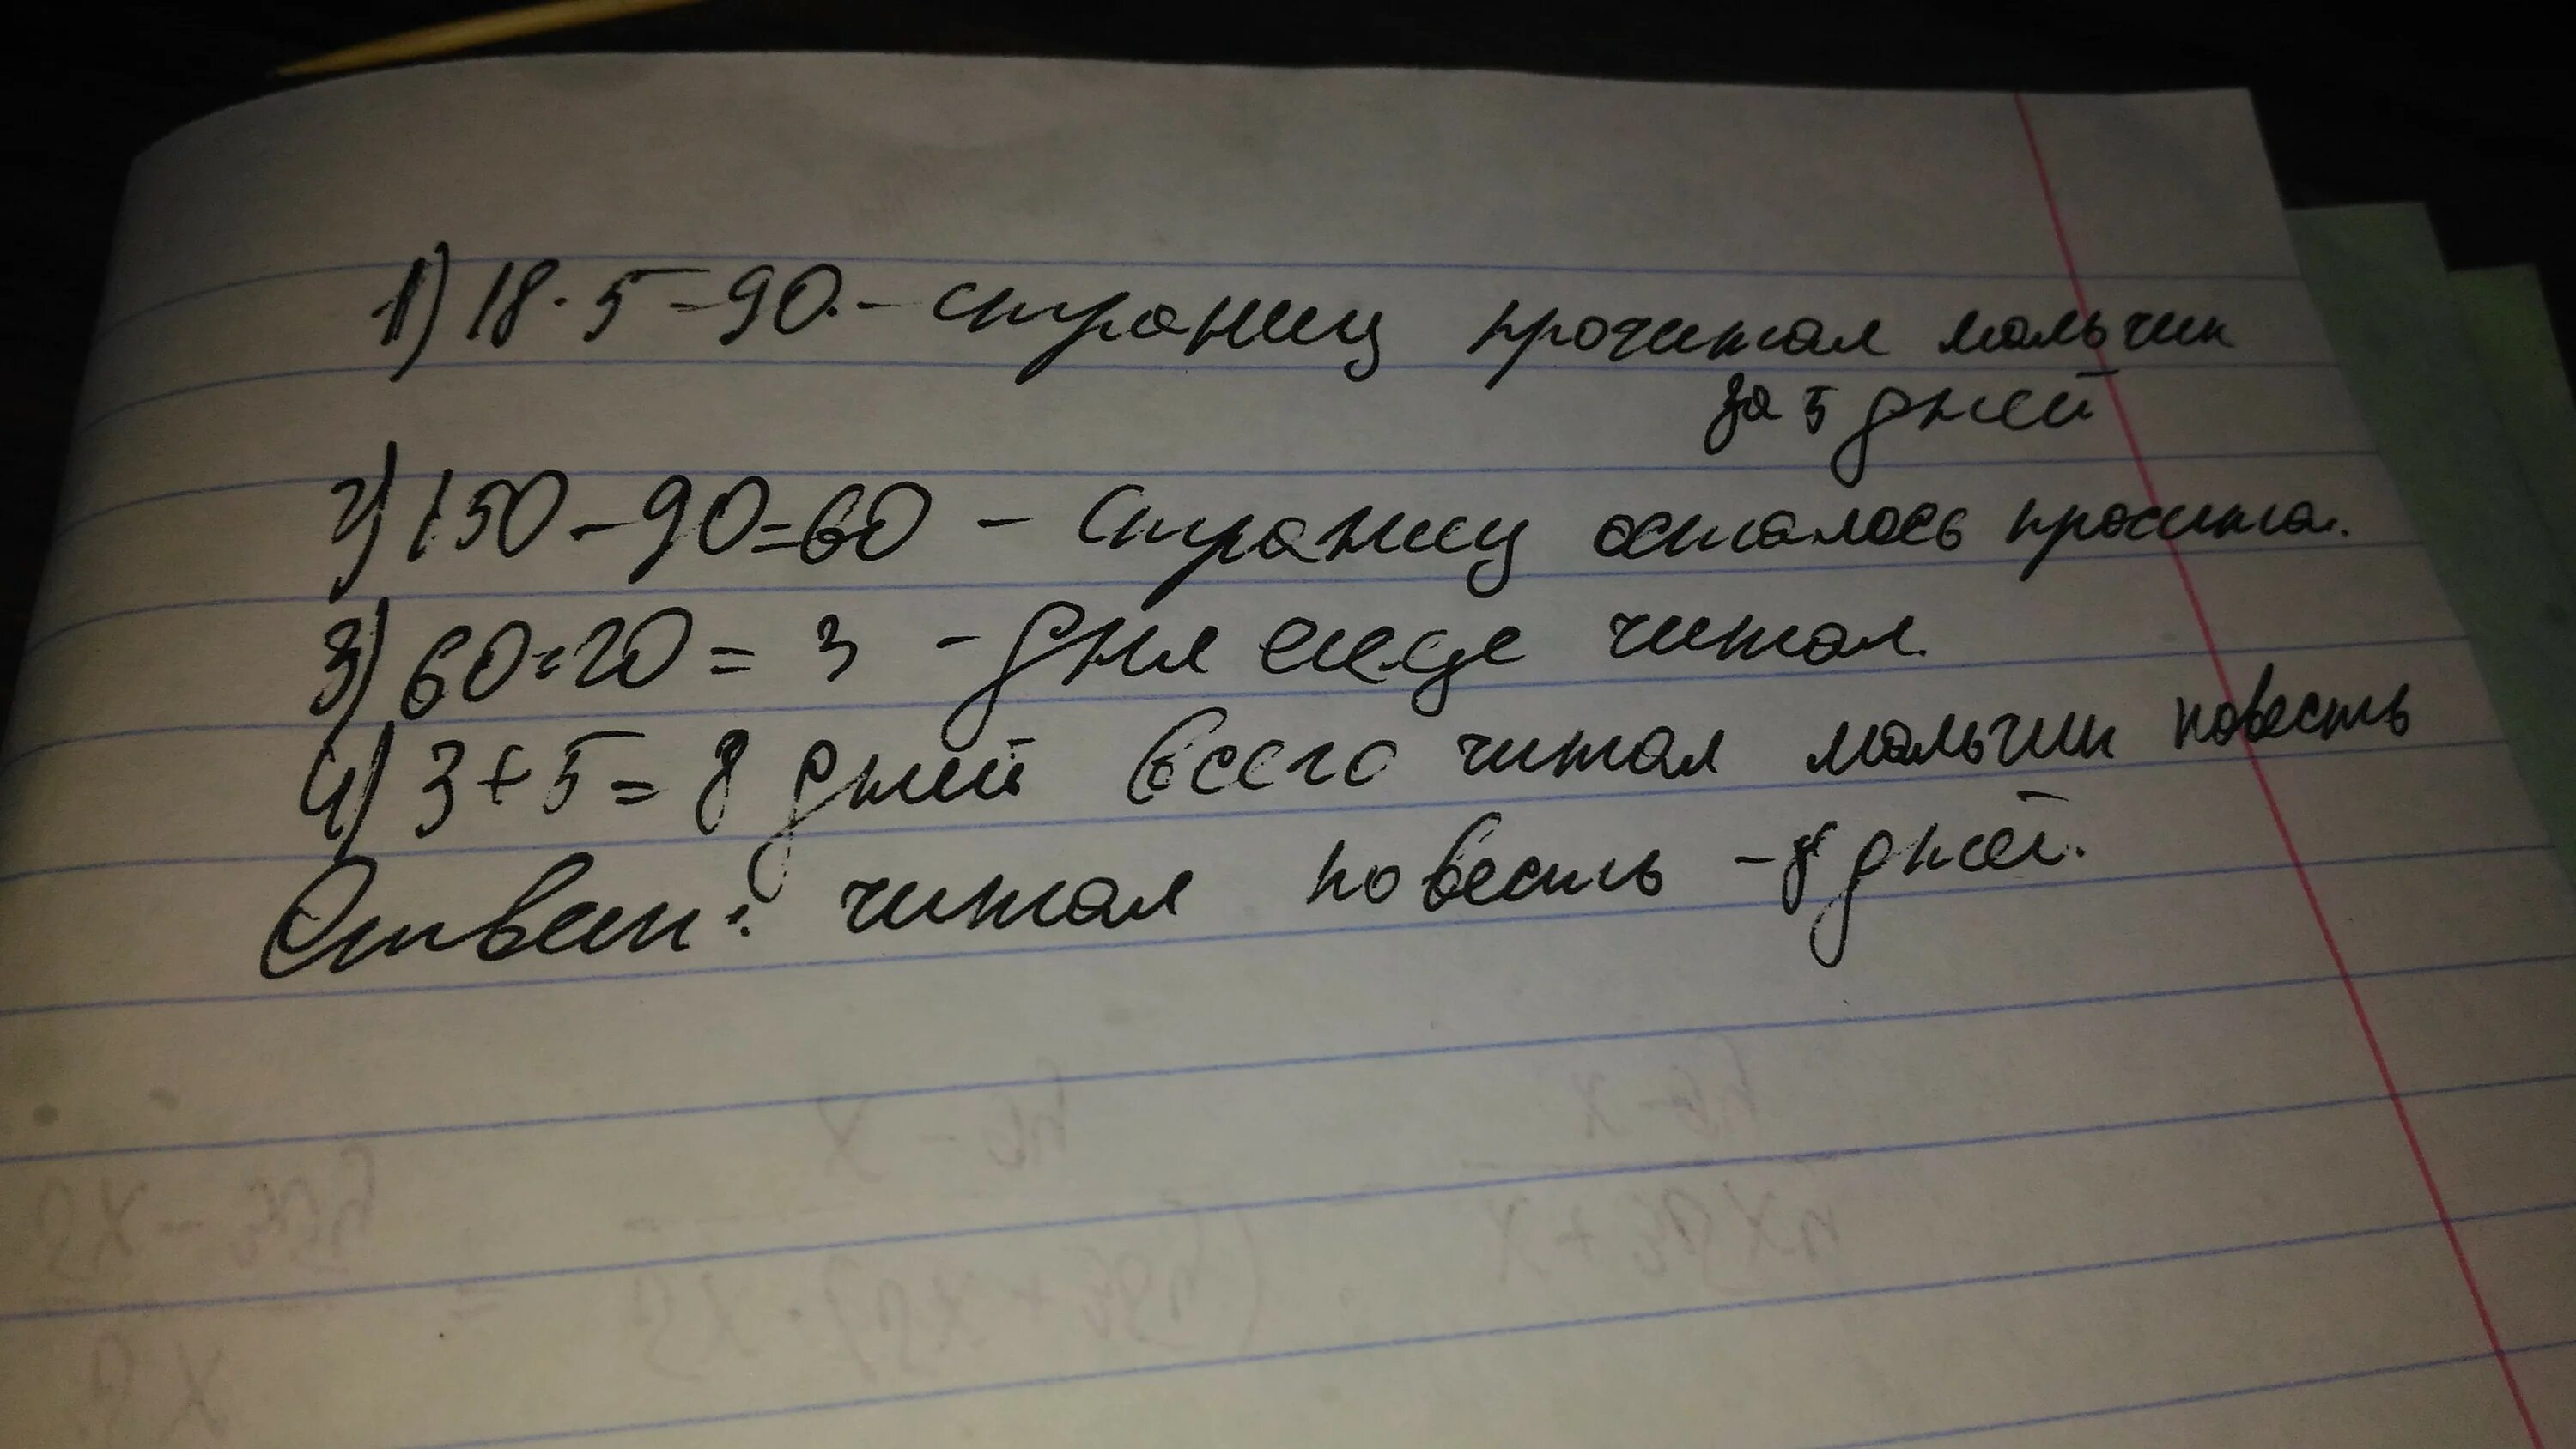 1) 18·5=90.- страниц прочитал мальчик
за 5 дней
2) 150-90=60 - страниц осталось прочита.
3) 60:20=3 - дня еще читал.
4) 3+5=8 дней всего читал мальчик повесть
Ответ: читал повесть -8 дней.